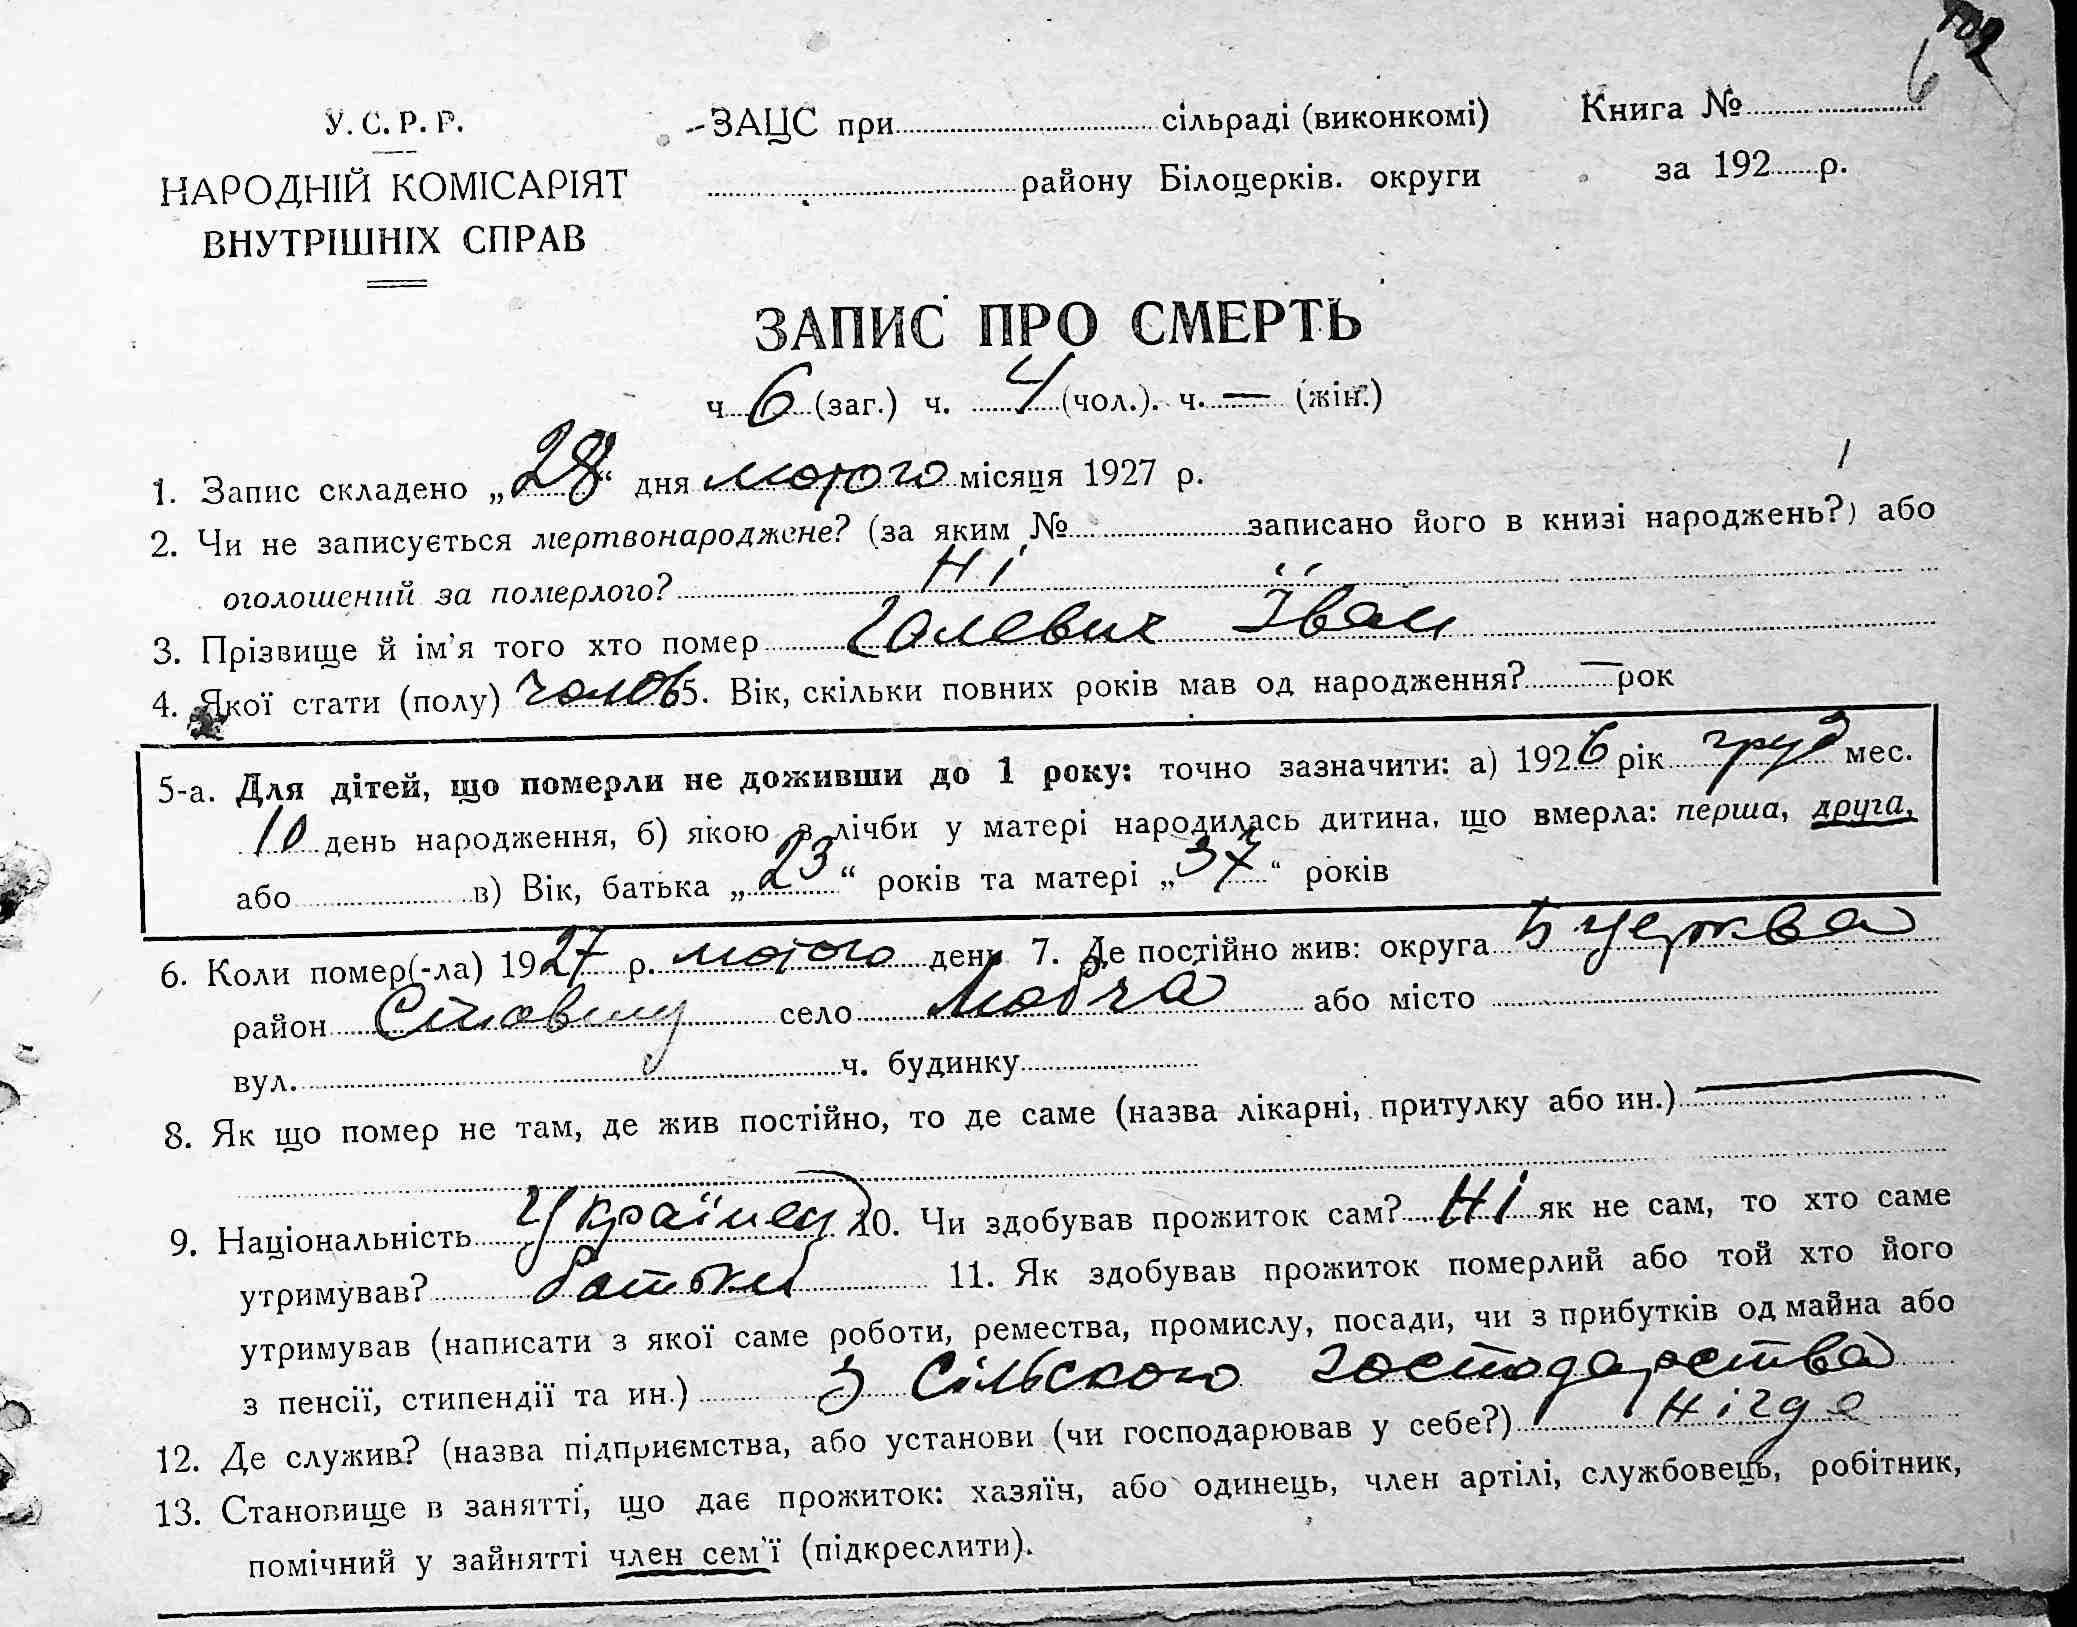 У. С. Р. Р.
НАРОДНІЙ КОМІСАРІЯТ
ВНУТРІШНІХ СПРАВ
ЗАЦС при сільраді (виконкомі)
району Білоцерків. округи
Книга №
за 192 р.
6
ЗАПИС ПРО СМЕРТЬ
ч 6 (заг.) ч. 4 (чол.). ч. — (жін.)
1. Запис складено „28“ дня лютого місяця 1927 р.
2. Чи не записується мертвонароджене? (за яким № записано його в книзі народжень?) або
оголошений за померлого? Ні
3. Прізвище й ім'я того хто помер Галевич Іван
4. Якої стати (полу) чолов 5. Вік, скільки повних років мав од народження? — рок
5-а. Для дітей, що померли не доживши до 1 року: точно зазначити: а) 1926 рік груд мес.
10 день народження, б) якою з лічби у матері народилась дитина, що вмерла: перша, друга,
або в) Вік, батька „23“ років та матері „37“ років
6. Коли помер(-ла) 1927 р. лютого день 7. Де постійно жив: округа Б Церква
район Ставищ село або місто
вул. ч. будинку
8. Як що помер не там, де жив постійно, то де саме (назва лікарні, притулку або ин.) —
9. Національність Українец 10. Чи здобував прожиток сам? Ні як не сам, то хто саме
утримував? батьки 11. Як здобував прожиток померлий або той хто його
утримував (написати з якої саме роботи, ремества, промислу, посади, чи з прибутків од майна або
з пенсії, стипендії та ин.) З Сільского господарства
12. Де служив? (назва підприємства, або установи (чи господарював у себе?) Нігде
13. Становище в занятті, що дає прожиток: хазяїн, або одинець, член артілі, службовець, робітник,
помічний у зайнятті член сем'ї (підкреслити).